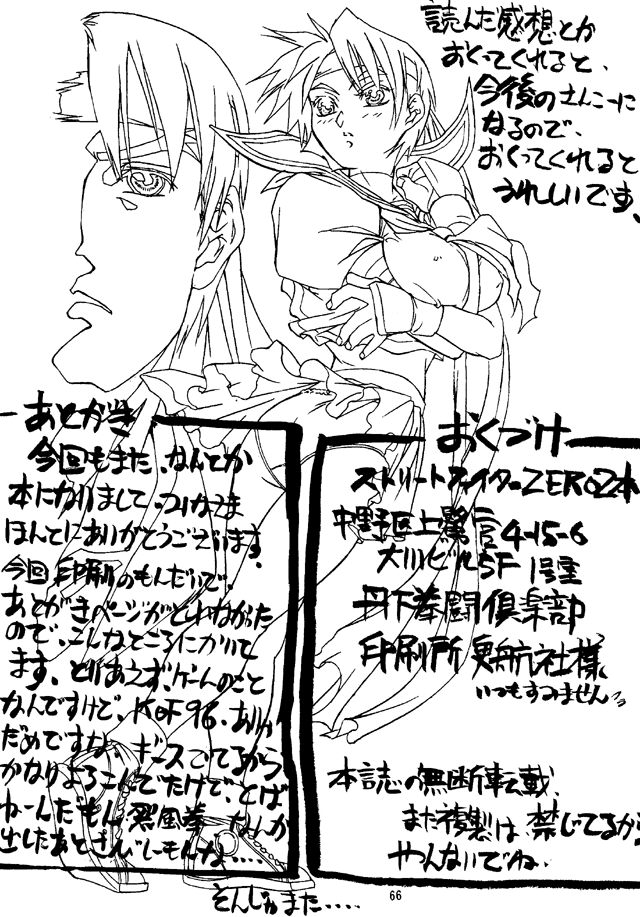 読んだ感想とか
おくってくれると、
今後のさんこーに
なるので、
おくってくれると
うれしいです、
おくづけ
ストリートファイターZERO2本
中野区上鷺宮4-15-6
大川ビル5F 1号室
丹下拳闘倶楽部
印刷所 東航社様
いつもすみません
本誌の無断転載、
また複製は、禁じてるから
やんないでね、
あとがき
今回もまた、なんとか
本になりまして、みなさま
ほんとにありがとうございます、
今回印刷のもんだいで、
あとがきページがとれなかった
ので、こんなところにかいて
ます、とりあえず、ゲームのこと
なんですけど、KOF96、あれ
だめですな、ギースでてるから
かなりよろこんでたけど、とば
ねーんだもん烈風拳 なんか
出したあとさびしーもんな....
そんじゃまた....
66